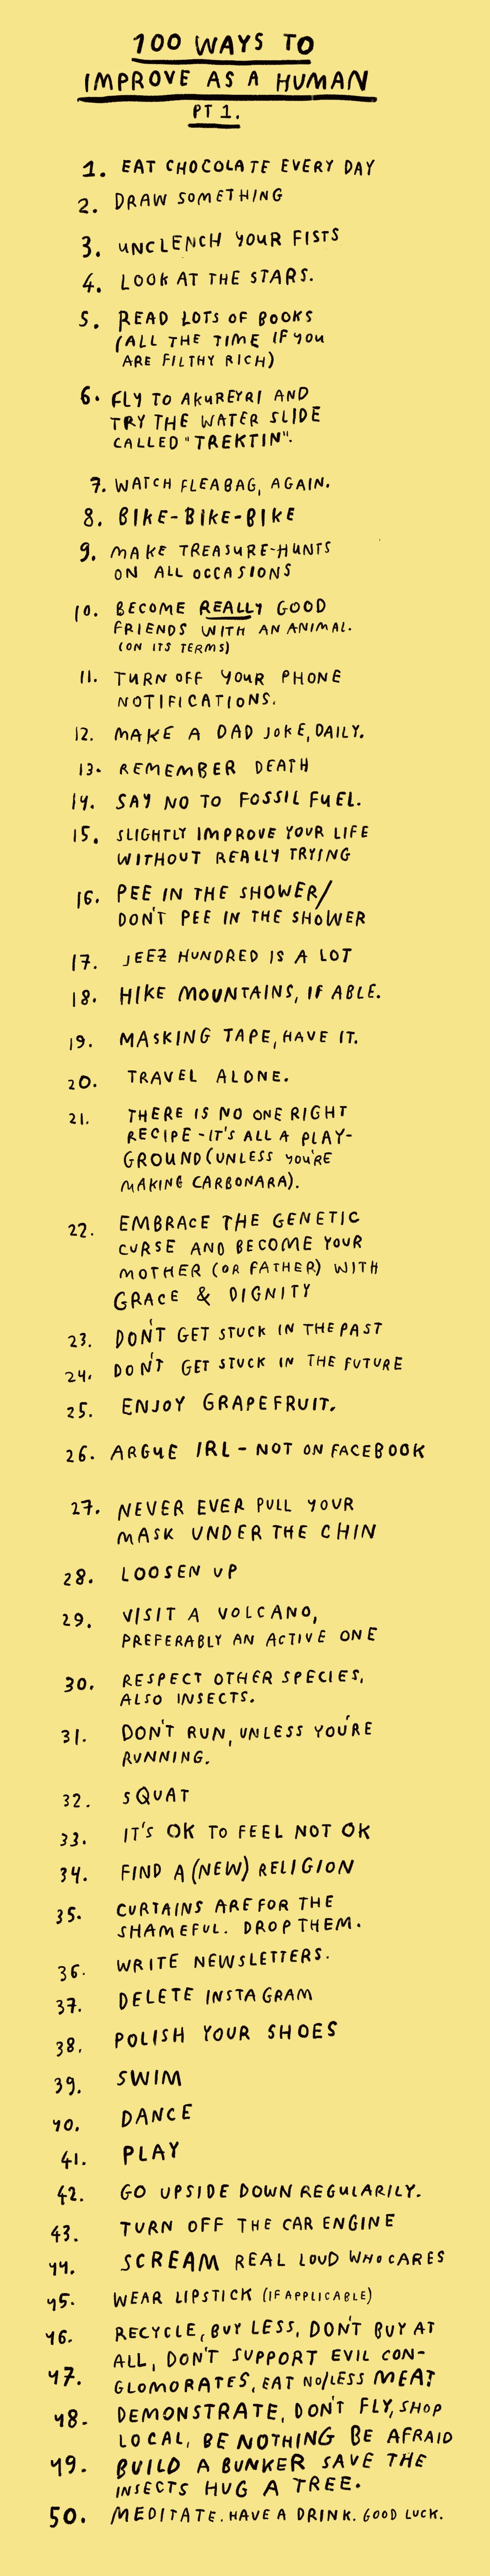 100 WAYS TO
IMPROVE AS A HUMAN
PT 1.
1. EAT CHOCOLATE EVERY DAY
2. DRAW SOMETHING
3. UNCLENCH YOUR FISTS
4. LOOK AT THE STARS.
5. READ LOTS OF BOOKS
(ALL THE TIME IF YOU
ARE FILTHY RICH)
6. FLY TO AKUREYRI AND
TRY THE WATER SLIDE
CALLED "TREKTIN".
7. WATCH FLEABAG, AGAIN.
8. BIKE-BIKE-BIKE
9. MAKE TREASURE-HUNTS
ON ALL OCCASIONS
10. BECOME REALLY GOOD
FRIENDS WITH AN ANIMAL.
(ON ITS TERMS)
11. TURN OFF YOUR PHONE
NOTIFICATIONS.
12. MAKE A DAD JOKE, DAILY.
13. REMEMBER DEATH
14. SAY NO TO FOSSIL FUEL.
15. SLIGHTLY IMPROVE YOUR LIFE
WITHOUT REALLY TRYING
16. PEE IN THE SHOWER/
DON'T PEE IN THE SHOWER
17. JEEZ HUNDRED IS A LOT
18. HIKE MOUNTAINS, IF ABLE.
19. MASKING TAPE, HAVE IT.
20. TRAVEL ALONE.
21. THERE IS NO ONE RIGHT
RECIPE - IT'S ALL A PLAY-
GROUND (UNLESS YOU'RE
MAKING CARBONARA).
22. EMBRACE THE GENETIC
CURSE AND BECOME YOUR
MOTHER (OR FATHER) WITH
GRACE & DIGNITY
23. DON'T GET STUCK IN THE PAST
24. DON'T GET STUCK IN THE FUTURE
25. ENJOY GRAPEFRUIT.
26. ARGUE IRL - NOT ON FACEBOOK
27. NEVER EVER PULL YOUR
MASK UNDER THE CHIN
28. LOOSEN UP
29. VISIT A VOLCANO,
PREFERABLY AN ACTIVE ONE
30. RESPECT OTHER SPECIES,
ALSO INSECTS.
31. DON'T RUN, UNLESS YOU'RE
RUNNING.
32. SQUAT
33. IT'S OK TO FEEL NOT OK
34. FIND A (NEW) RELIGION
35. CURTAINS ARE FOR THE
SHAMEFUL. DROP THEM.
36. WRITE NEWSLETTERS.
37. DELETE INSTAGRAM
38. POLISH YOUR SHOES
39. SWIM
40. DANCE
41. PLAY
42. GO UPSIDE DOWN REGULARILY.
43. TURN OFF THE CAR ENGINE
44. SCREAM REAL LOUD WHO CARES
45. WEAR LIPSTICK (IF APPLICABLE)
46. RECYCLE, BUY LESS, DON'T BUY AT
ALL, DON'T SUPPORT EVIL CON-
47. GLOMORATES, EAT NO/LESS MEAT
48. DEMONSTRATE, DON'T FLY, SHOP
LOCAL, BE NOTHING BE AFRAID
49. BUILD A BUNKER SAVE THE
INSECTS HUG A TREE.
50. MEDITATE. HAVE A DRINK. GOOD LUCK.